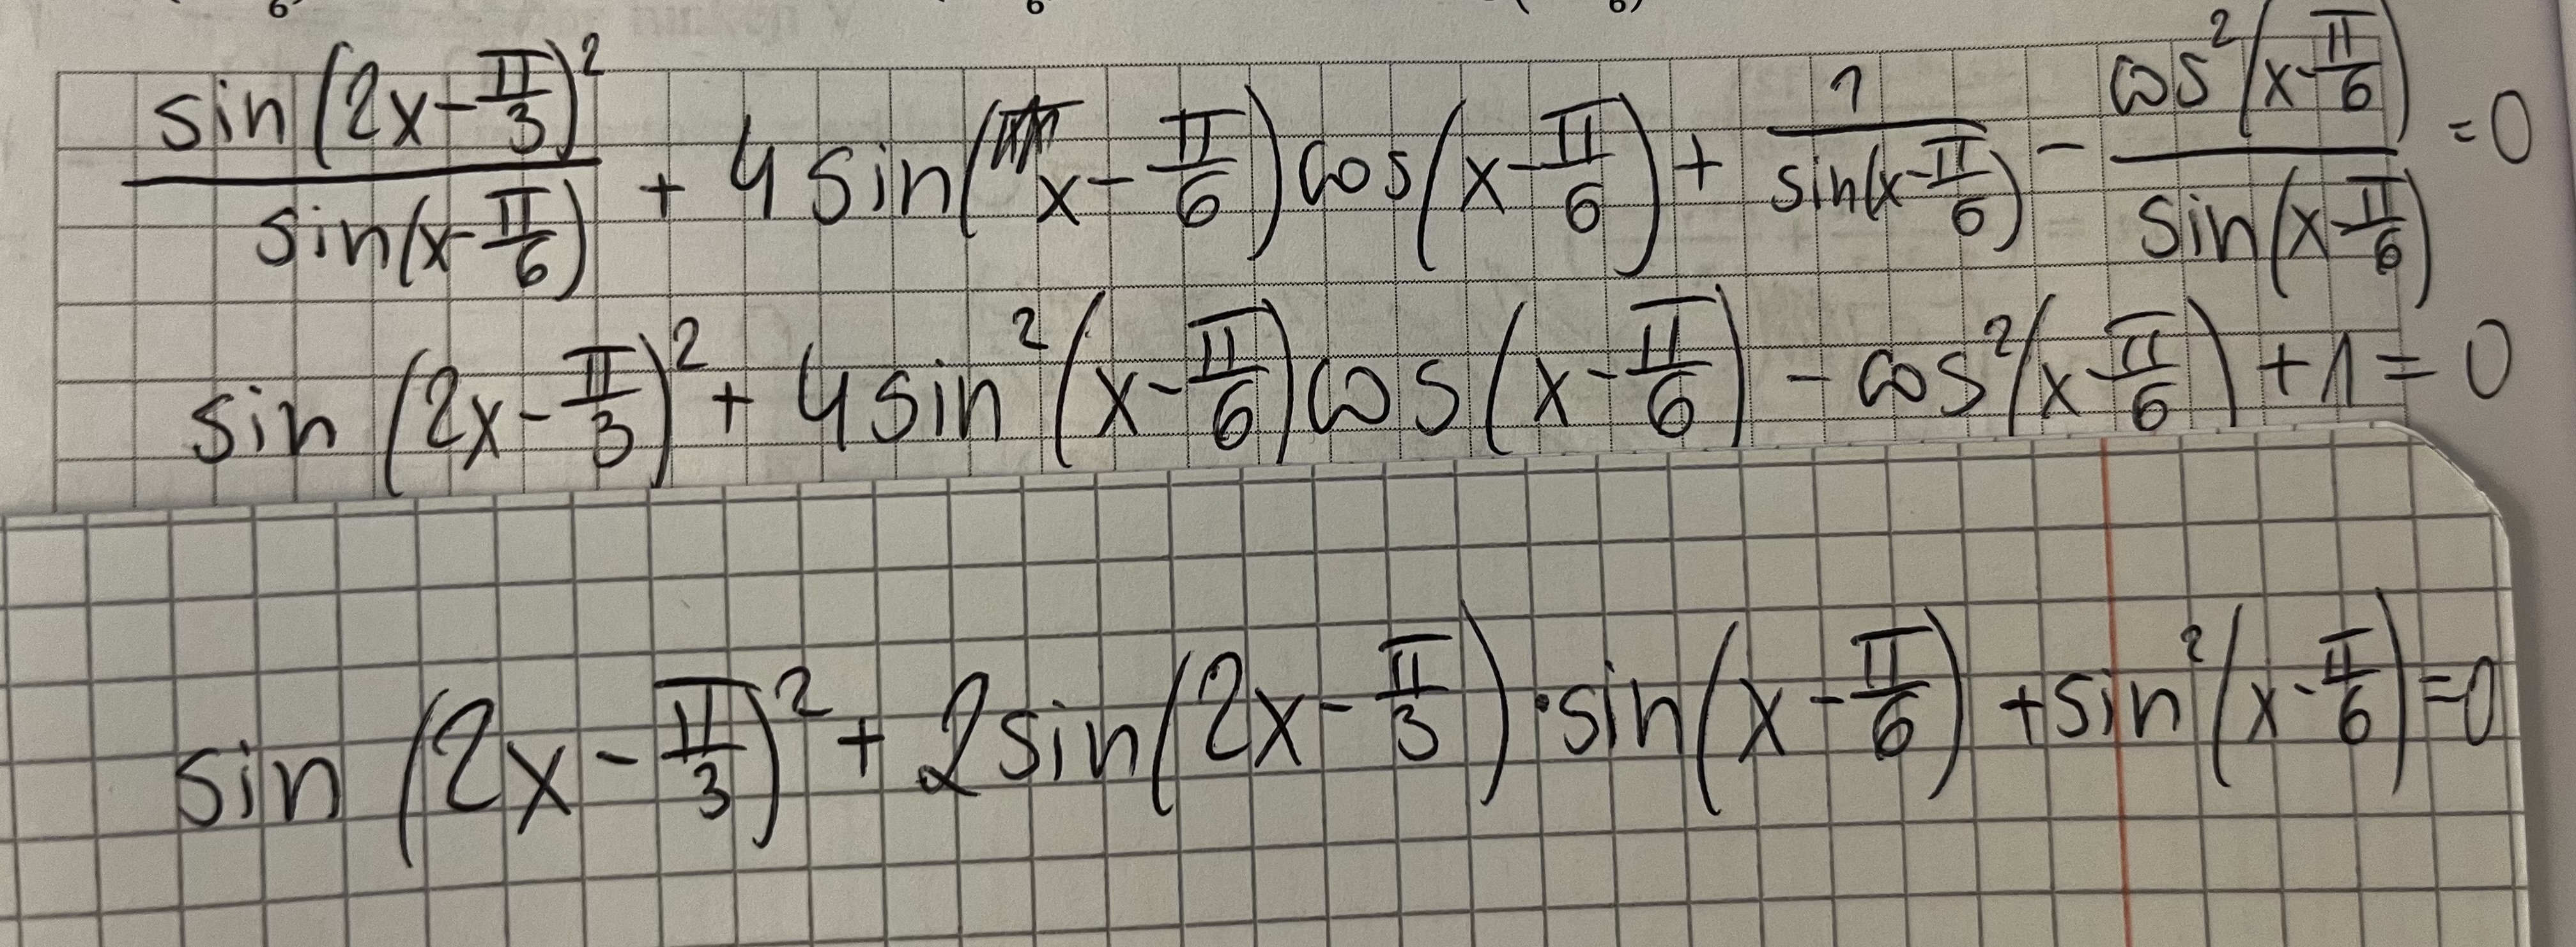 6) 6 (6)
sin(2x-π/3)²/sin(x-π/6) + 4sin(x-π/6)cos(x-π/6) + 1/sin(x-π/6) - cos²(x-π/6)/sin(x-π/6) =0
sin(2x-π/3)² + 4sin²(x-π/6)cos(x-π/6) - cos²(x-π/6) +1=0
sin(2x-π/3)² + 2sin(2x-π/3)·sin(x-π/6) +sin²(x-π/6)=0